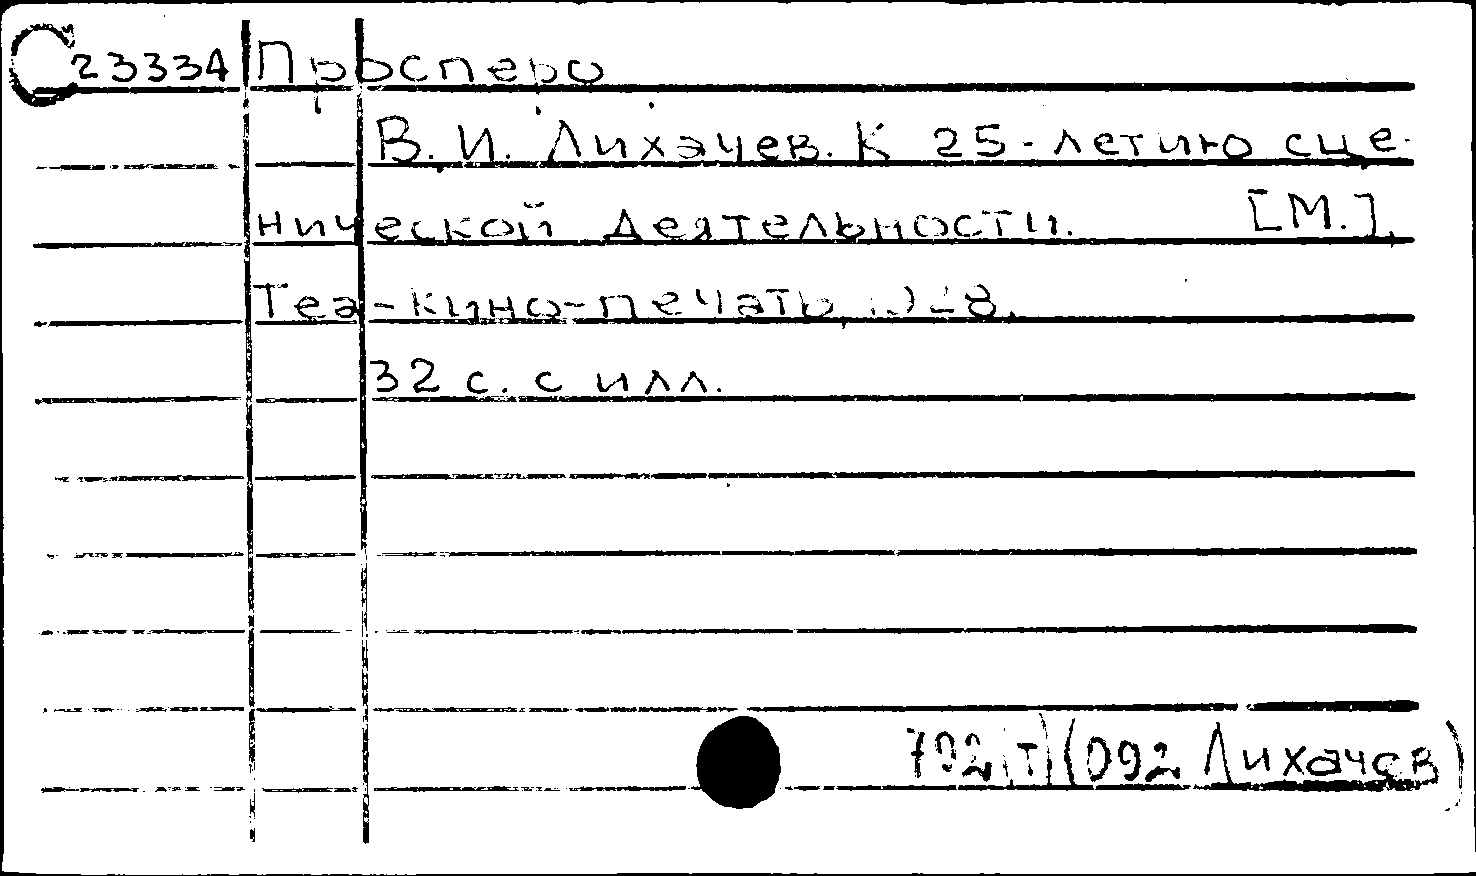 С 23334 Просперо
В. И. Лихачев. К 25-летию сце-
нической деятельности. [М.],
Теа-кино-печать, 1928.
32 с. с илл.
792(т)(092 Лихачев)